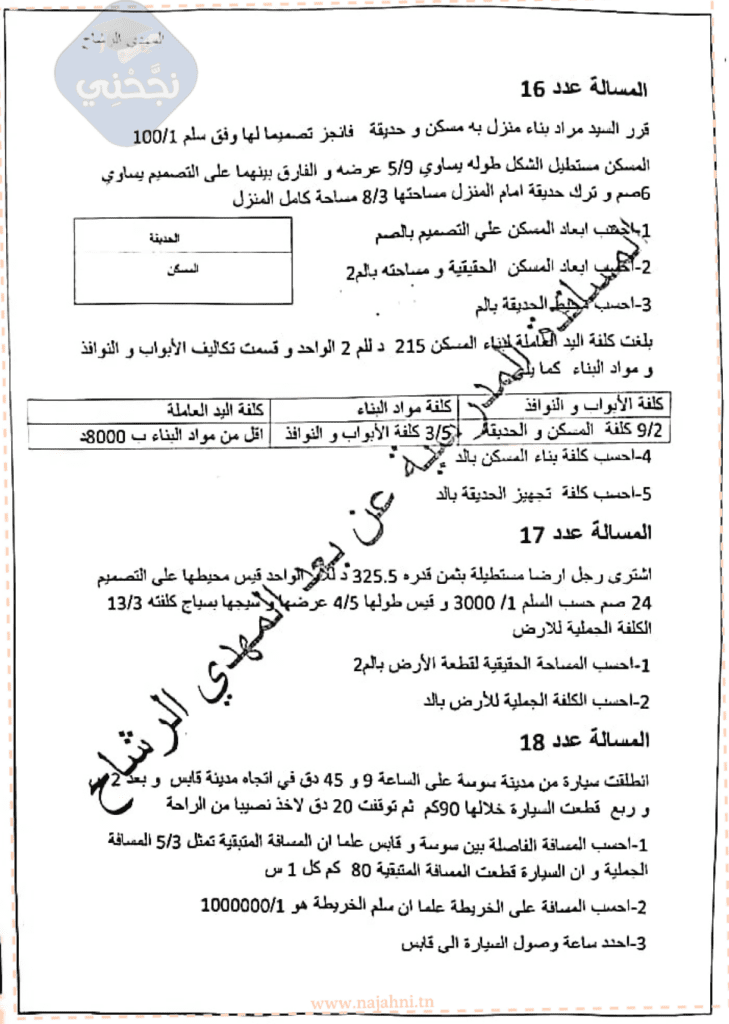 المهدي الرشاح
نجّحْنِي
المسالة عدد 16
قرر السيد مراد بناء منزل به مسكن و حديقة فانجز تصميما لها وفق سلم 100/1
المسكن مستطيل الشكل طوله يساوي 5/9 عرضه و الفارق بينهما على التصميم يساوي
6صم و ترك حديقة امام المنزل مساحتها 8/3 مساحة كامل المنزل
1-احسب ابعاد المسكن علي التصميم بالصم
الحديقة
المسكن
2-احسب ابعاد المسكن الحقيقية و مساحته بالم2
3-احسب محيط الحديقة بالم
بلغت كلفة اليد العاملة لبناء المسكن 215 د للم 2 الواحد و قسمت تكاليف الأبواب و النوافذ
و مواد البناء كما يلي
كلفة الأبواب و النوافذ كلفة مواد البناء كلفة اليد العاملة
9/2 كلفة المسكن و الحديقة 3/5 كلفة الأبواب و النوافذ اقل من مواد البناء ب 8000د
4-احسب كلفة بناء المسكن بالد
5-احسب كلفة تجهيز الحديقة بالد
المسالة عدد 17
اشترى رجل ارضا مستطيلة بثمن قدره 325.5 د الواحد قيس محيطها على التصميم
24 صم حسب السلم 1/ 3000 و قيس طولها 4/5 عرضها و سيجها بسياج كلفته 13/3
الكلفة الجملية للارض
1-احسب المساحة الحقيقية لقطعة الأرض بالم2
2-احسب الكلفة الجملية للأرض بالد
المسالة عدد 18
انطلقت سيارة من مدينة سوسة على الساعة 9 و 45 دق في اتجاه مدينة قابس و بعد 2
و ربع قطعت السيارة خلالها 90كم ثم توقفت 20 دق لاخذ نصيبا من الراحة
1-احسب المسافة الفاصلة بين سوسة و قابس علما ان المسافة المتبقية تمثل 5/3 المسافة
الجملية و ان السيارة قطعت المسافة المتبقية 80 كم كل 1 س
2-احسب المسافة على الخريطة علما ان سلم الخريطة هو 1000000/1
3-احدد ساعة وصول السيارة الى قابس
عن بعد المهدي الرشاح
www.najahni.tn